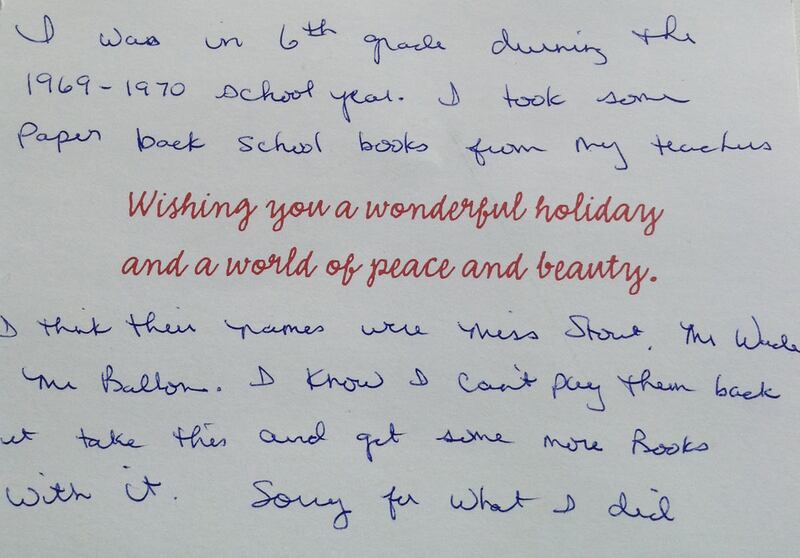 I was in 6th grade during the
1969-1970 school year. I took some
Paper back School books from my teachers
Wishing you a wonderful holiday
and a world of peace and beauty.
I think their names were Miss Stout, Mr Wade
Mr Ballom. I know I can't pay them back
ut take this and get some more Books
with it. Sorry for what I did